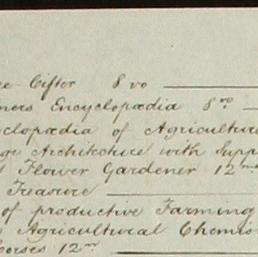 Gifter 8 vo
Encyclopædia 8vo
of Agriculture
Architecture with Supp
Flower Gardener 12mo
Treasure
of productive Farming
Agricultural Chemis
Horses 12mo